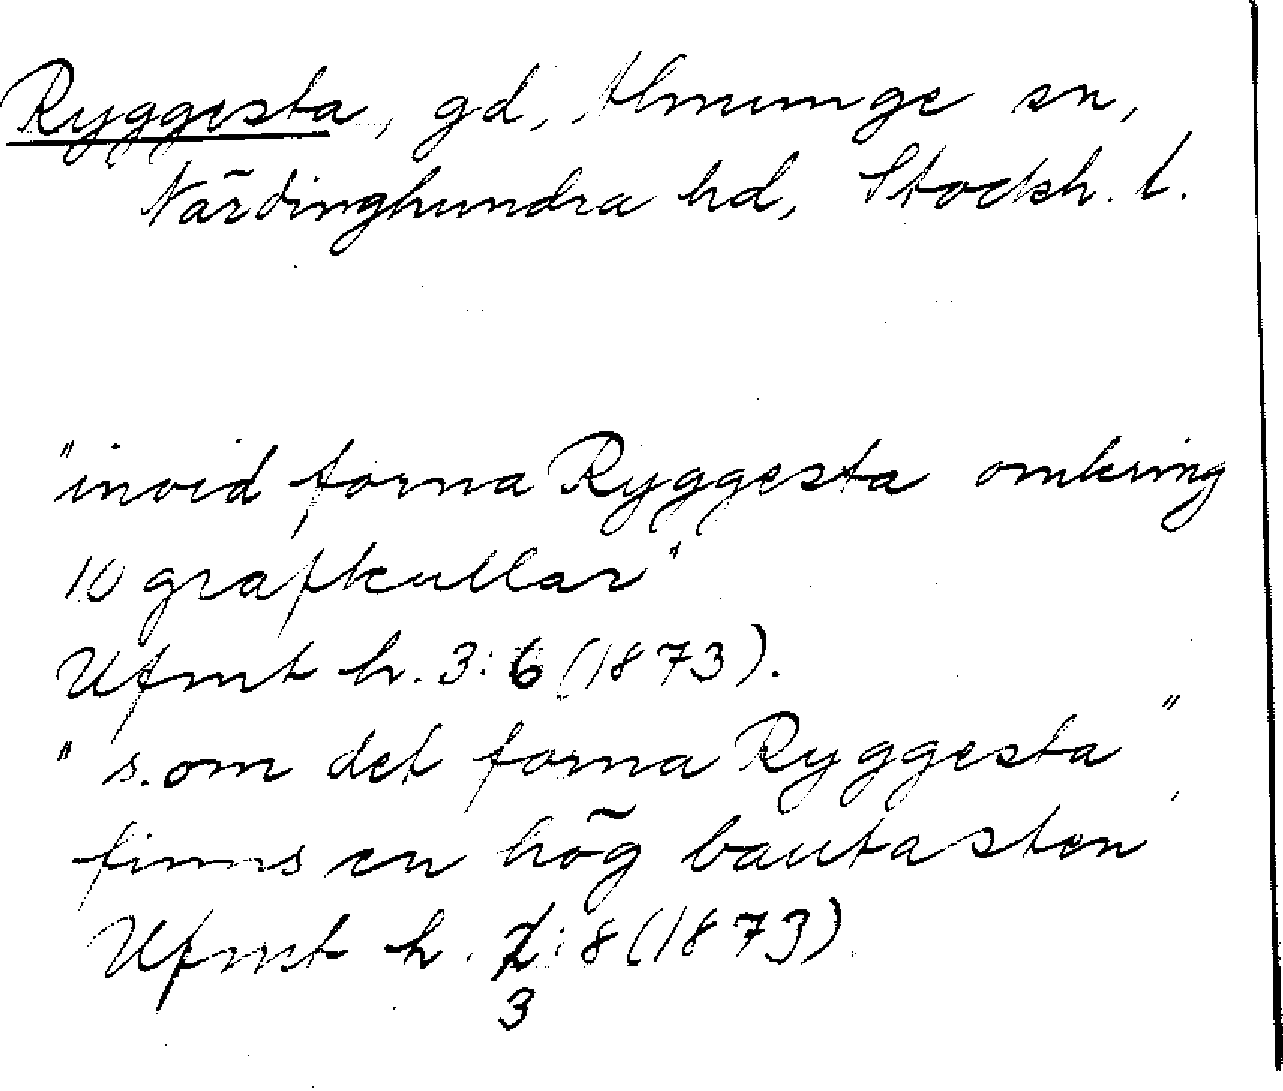 Ryggesta, gd, Almunge sn,
Närdinghundra hd, Stockh. l.
"invid forna Ryggesta omkring
10 grafkullar"
Ufmt h. 3:6 (1873).
"s. om det forna Ryggesta"
finns en hög bautasten'
Ufmt h. 2:8 (1873)
3